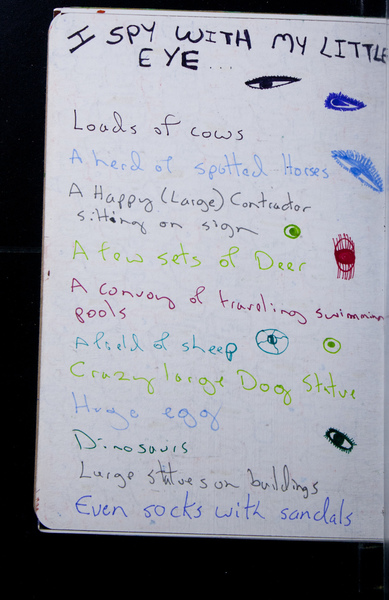 I SPY WITH MY LITTLE
EYE...
Loads of cows
A herd of spotted Horses
A Happy (Large) Contractor
sitting on sign
A few sets of Deer
A convoy of traveling swimming
pools
A field of sheep
Crazy large Dog Statue
Huge egg
Dinosaurs
Large statues on buildings
Even socks with sandals